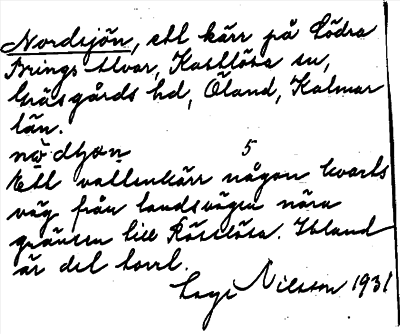 Nordsjön, ett kärr på Södra
Brings Alvar, Kastlösa sn,
Gräsgårds hd, Öland, Kalmar
län.
5
Ett vattenkärr någon kvarts
väg från landsvägen nära
gränsen till Kastlösa. Ibland
är det torrt.
Nilsson 1931